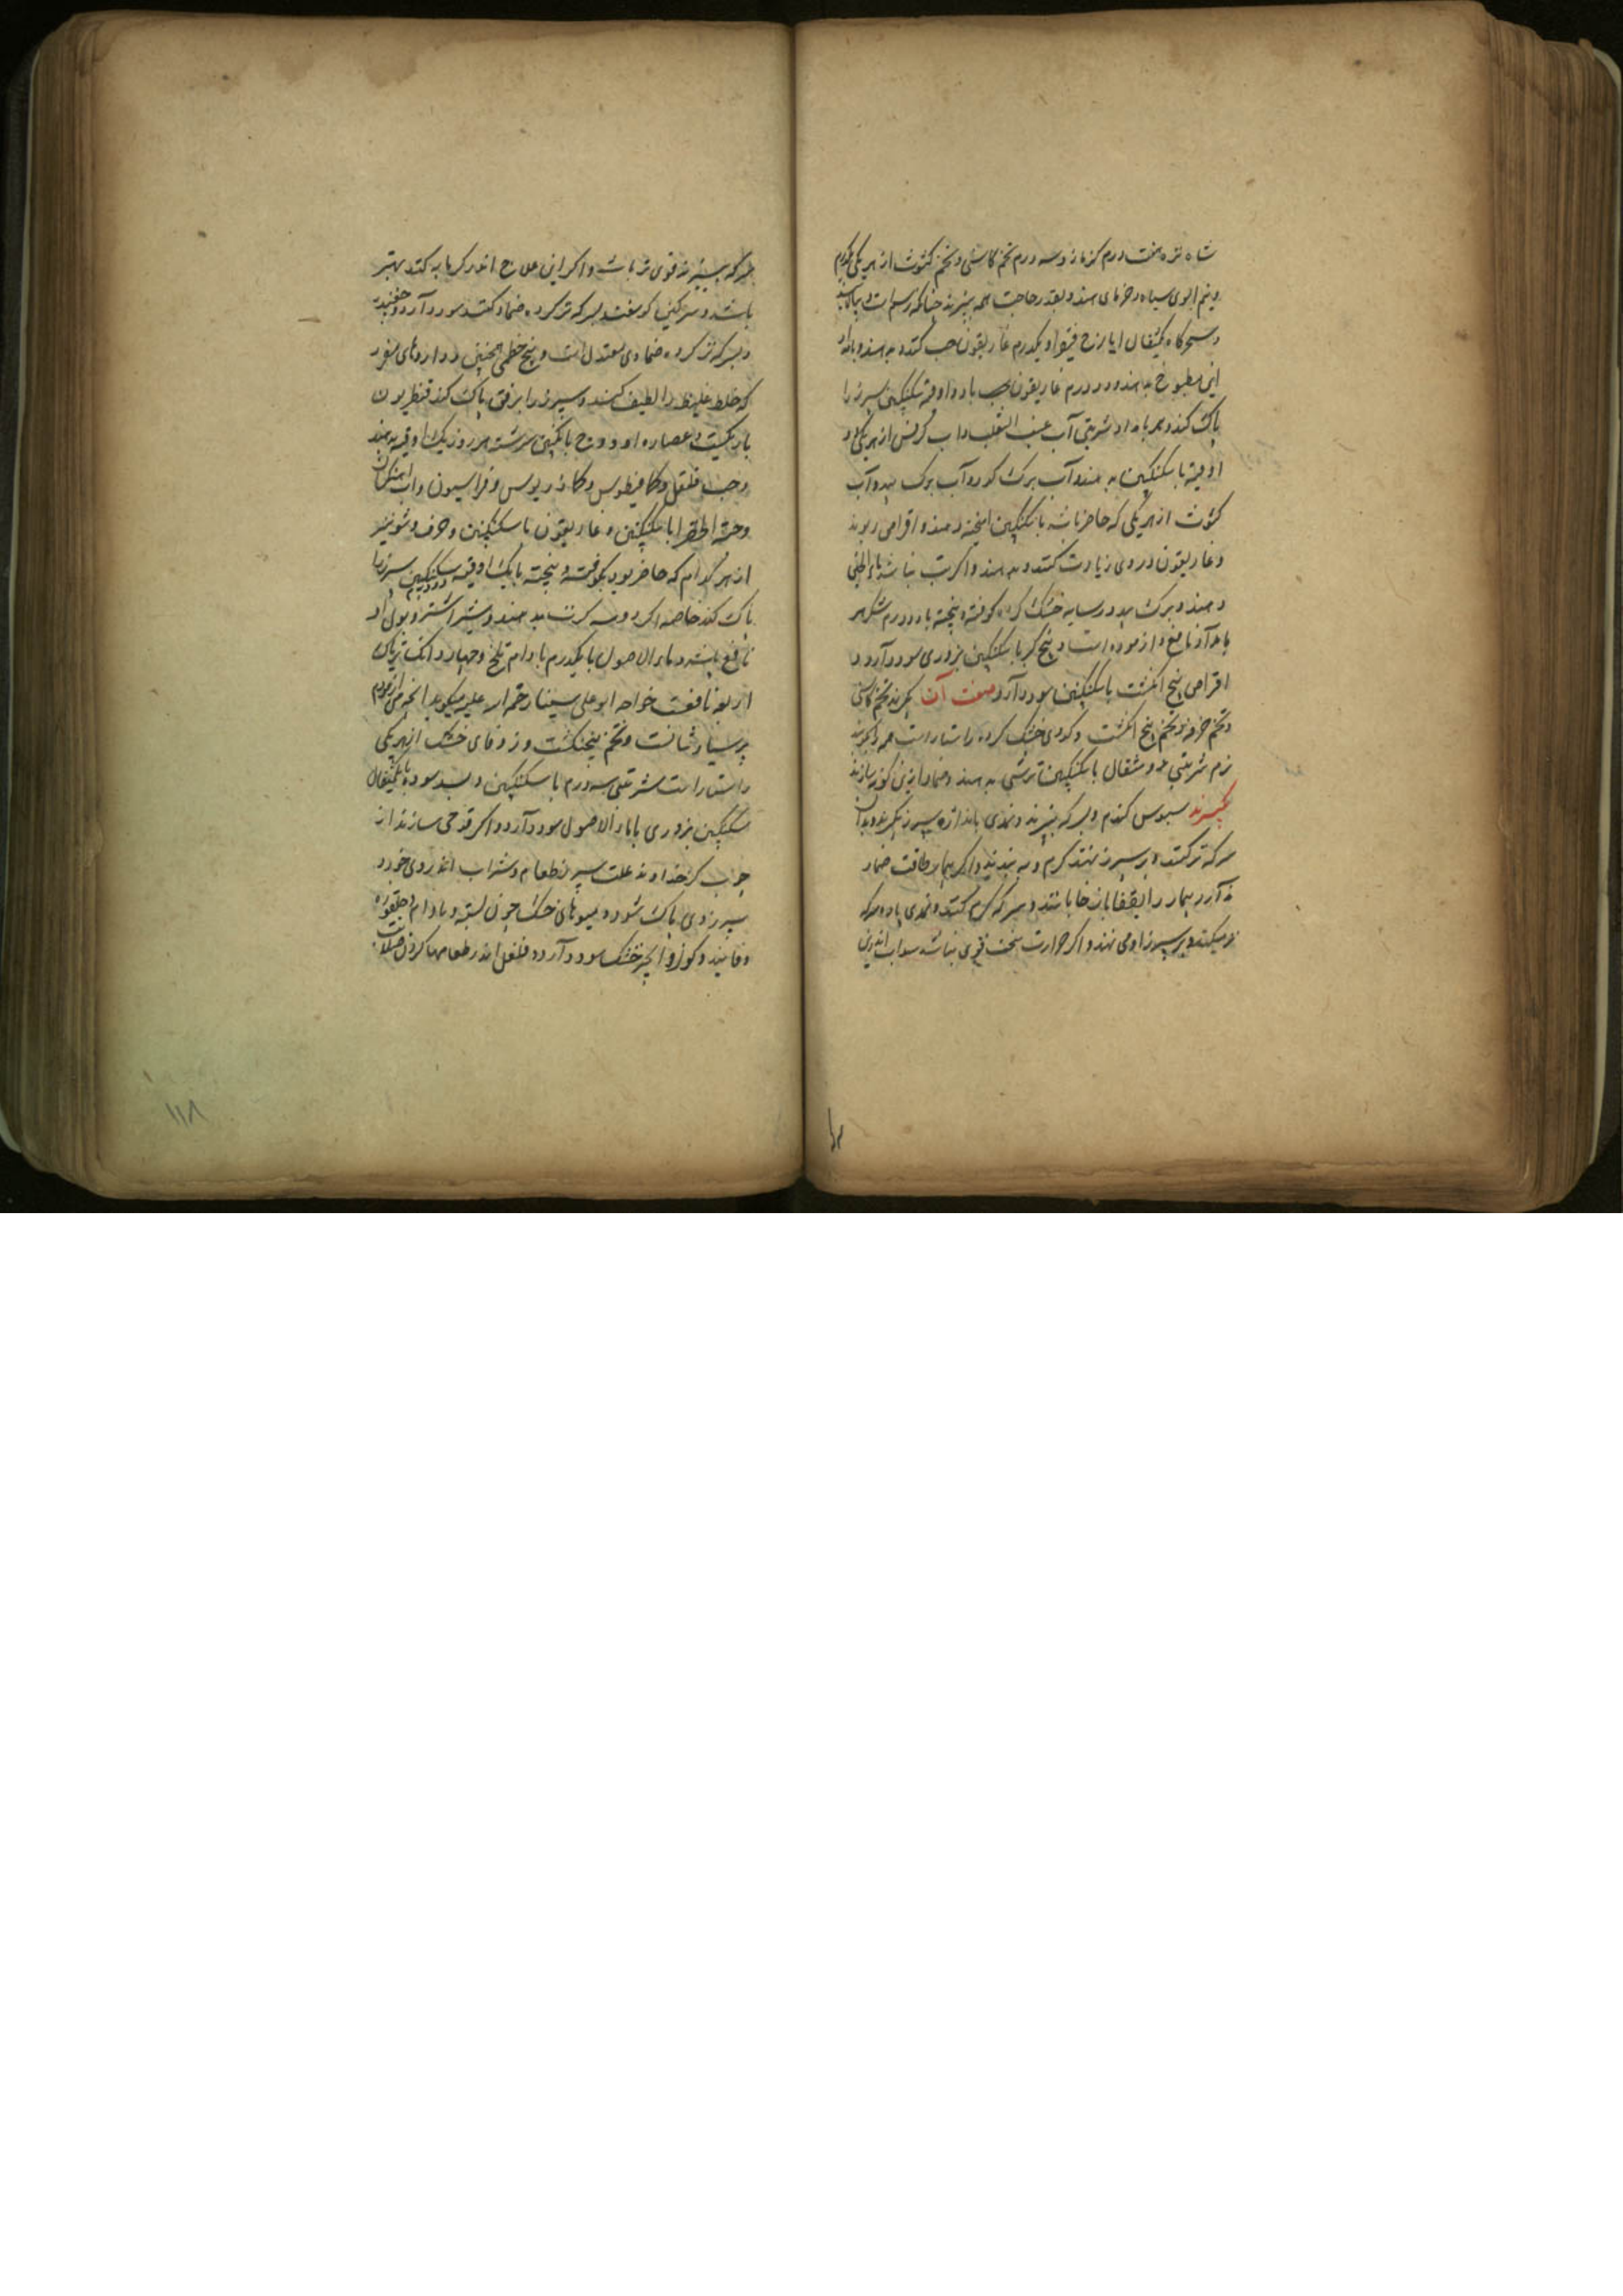 شاه تره هفت درم کزمازو سه درم تخم کاسنی و تخم کشوث از هر یکی
و نیم الوی سیاه و خرمای هندو بقدر حاجت همه بپزند چنانکه رسم است و بپالایند
و سحرگاه یکمثقال ایارج فیقرا و یکدرم غاریقون حب کنند و بدهند و بامداد
این مطبوخ بدهند و دو درم غاریقون با دو اوقیه سکنکبین سپرز را
پاک کند و هر بامداد شربتی آب عنب الثعلب و آب کرفس از هر یکی دو
اوقیه با سکنکبین بدهند و آب برک کز و آب برک بید و آب
کشوث از هر یکی که حاضر باشد با سکنکبین امیخته دهند و اقراص ریوند
و غاریقون در وی زیادت کنند و بدهند و اکر تب نباشد ماء الجبن
دهند و برک بید در سایه خشک کرده کوفته و بیخته با دو درم شکر هر
بامداد نافع و ازموده است و بیخ کبر با سکنکبین بزوری سود دارد و
اقراص پنج انکشت با سکنکبین سود دارد صفت آن بکیرند تخم کاسنی
و تخم خرفه و تخم پنج انکشت و کدوی خشک کرده راستاراست همه را بکوبند
نرم شربتی دو مثقال با سکنکبین ترشی بدهند و ضماد ازین کونه سازند
بکیرند سبوس کندم و بسرکه بپزند و نمدی باندازه سپرز بکیرند و بدان
سرکه تر کنند و بر سپرز نهند کرم و ببندند و اکر بیمار طاقت ضماد
ندارد بیمار را بقفا باز خابانند و سرکه کرم کنند و نمدی بدو سرکه
تر میکنند و بر سپرز او می نهند و اکر حرارت سخت قوی نباشد سداب اندرین
سرکه بپزند قوی تر باشد و اکر این علاج اندر کرمابه کنند بهتر
باشد و سرکین کوسفند بسرکه تر کرده ضماد کنند سود دارد و
و بسرکه تر کرده ضمادی معتدل است و بیخ خطمی همچنین و داروهای مفرد
که خلط غلیظ را لطیف کنند و سپرز را برفق پاک کند قنطریون
باریکست و عصاره او و وج بانکبین سرشته هر روز یک اوقیه بدهند
و حب فلفل و کمافیطوس و کماذریوس و فراسیون و آب
و حبة الخضرا با سکنکبین و غاریقون با سکنکبین و حرف و شونیز
از هر کدام که حاضر بود بکوفته و بیخته با یک اوقیه سکنکبین سپرز را
پاک کند خاصه اکر دو سه کرت بدهند و شیر اشتر و بول او
نافع باشد و ماء الاصول با یکدرم بادام تلخ و چهار دانک تریاک
اربعه نافعست خواجه ابو علی سینا رحمه الله علیه میکوید انچه من ازمودم
پرسیاوشانست و تخم پنجنکشت و زوفای خشک از هر یکی
راستاراست شربتی سه درم با سکنکبین و بسد سوده یکمثقال
سکنکبین بزوری با ماء الاصول سود دارد و اکر قدحی سازند از
چوب کز خداوند علت سپرز طعام و شراب اندر وی خورد
سپرز وی پاک شود و میوهای خشک چون پسته و بادام و جلغوزه
و فانید و کوز و انجیر خشک سود دارد و فلفل اندر طعامها کردن
۱۱۸